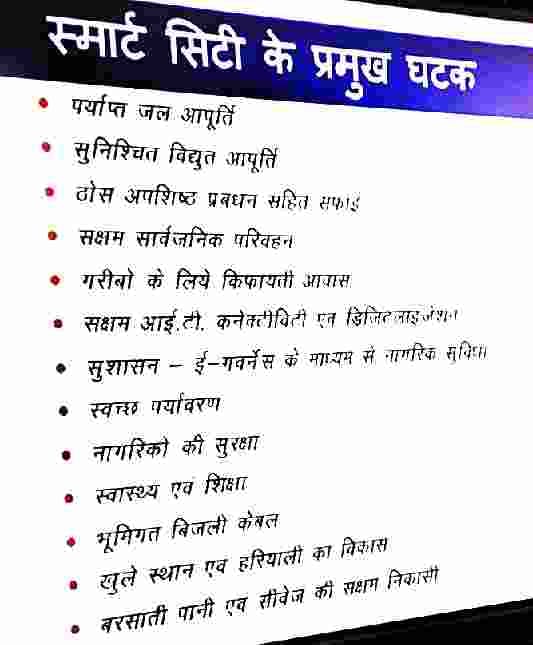 स्मार्ट सिटी के प्रमुख घटक
पर्याप्त जल आपूर्ति
सुनिश्चित विद्युत आपूर्ति
ठोस अपशिष्ठ प्रबधन सहित सफाई
सक्षम सार्वजनिक परिवहन
गरीबो के लिये किफायती आवास
सक्षम आई.टी. कनेक्टीविटी एव डिजिटलाइजेशन
सुशासन – ई-गवर्नेस के माध्यम से नागरिक सुविधा
स्वच्छ पर्यावरण
नागरिको की सुरक्षा
स्वास्थ्य एवं शिक्षा
भूमिगत बिजली केबल
खुले स्थान एव हरियाली का विकास
बरसाती पानी एव सीवेज की सक्षम निकासी